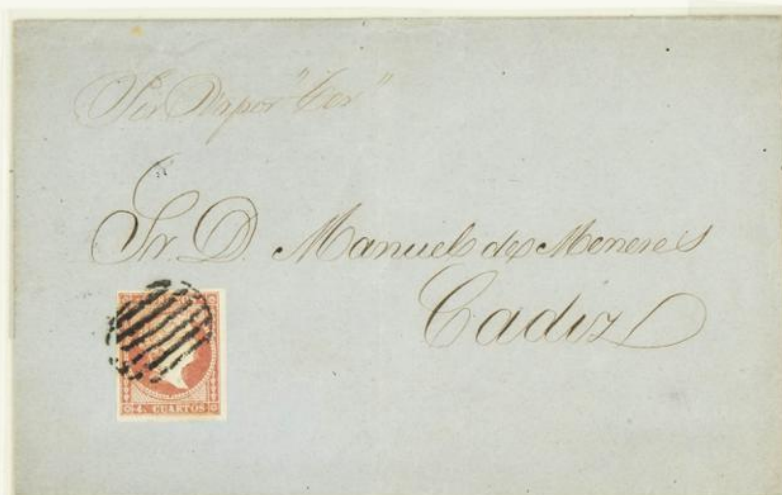 Por Vapor
Sr. D. Manuel de Meneses
Cadiz
4. CUARTOS